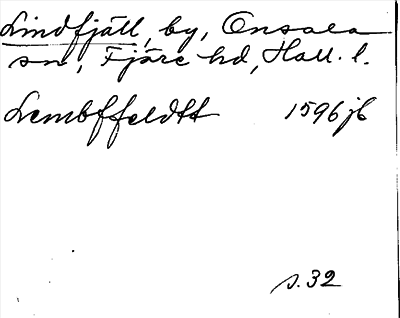 Lindfjäll, by, Onsala
sn, Fjäre hd, Hall. l.
Lembffeldtt 1596 jb
s. 32